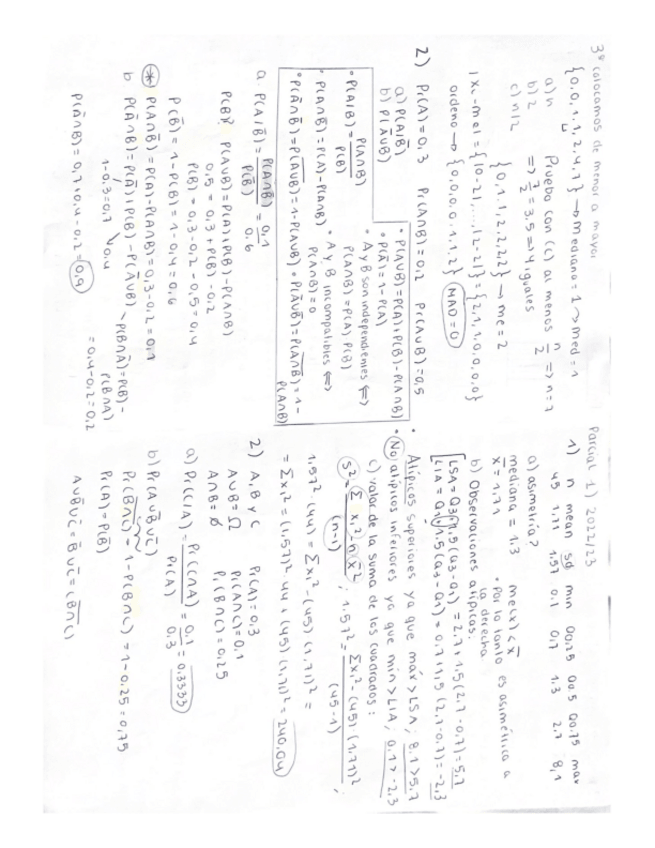 3º colocamos de menor a mayor
{0,0,1,1,2,4,7} → mediana = 1 → med = 1
a) n
b) 2
c) n/2
Pruebo con (c) al menos n/2 => n = 7
=> 7/2 = 3.5 => 4 iguales
{0,1,1,2,2,2,2} → me = 2
|xi - me| = {|0-2|, ..., |2-2|} = {2,1,1,0,0,0,0}
ordeno → {0,0,0,0,1,1,2} MAD = 0
2) Pr(A) = 0,3 Pr(A∩B) = 0,2 Pr(A∪B) = 0,5
a) P(A|B̄)
b) P(Ā∪B)
• P(A∪B) = P(A) + P(B) - P(A∩B)
• P(Ā) = 1 - P(A)
• P(A/B) = P(A∩B) / P(B)
• A y B son independientes <=>
P(A∩B) = P(A) P(B)
• P(A∩B̄) = P(A) - P(A∩B)
• A y B incompatibles <=>
P(A∩B) = 0
• P(Ā∩B̄) = P(A∪B) = 1 - P(A∪B) • P(Ā∪B̄) = P(A∩B) = 1 - P(A∩B)
a P(A/B̄) = P(A∩B̄) / P(B̄) = 0,1 / 0.6
P(B)? P(A∪B) = P(A) + P(B) - P(A∩B)
0,5 = 0,3 + P(B) - 0,2
P(B) = 0,3 - 0,2 - 0,5 = 0,4
P(B̄) = 1 - P(B) = 1 - 0,4 = 0,6
(*) P(A∩B̄) = P(A) - P(A∩B) = 0,3 - 0,2 = 0,1
b P(Ā∩B) = P(Ā) + P(B) - P(Ā∪B) P(B∩Ā) = P(B) - P(B∩A)
1 - 0,3 = 0,7 0,4 = 0,4 - 0,2 = 0,2
P(Ā∩B) = 0,7 + 0,4 - 0,2 = 0,9
Parcial 1) 2022/23
1) n mean sd min Q0,25 Q0.5 Q0.75 max
45 1,71 1.57 0.1 0,7 1.3 2,7 8,1
a) asimetría?
mediana = 1.3 me(x) < x̄
x̄ = 1.71 • Por lo tanto es asimétrica a la derecha
b) Observaciones atípicas:
LSA = Q3 + 1,5 (Q3 - Q1) = 2,7 + 1,5 (2,7 - 0,7) = 5,7
LIA = Q1 - 1,5 (Q3 - Q1) = 0,7 - 1,5 (2,7 - 0,7) = -2,3
• Atípicos superiores ya que máx > LSA; 8.1 > 5,7
• No atípicos inferiores ya que min > LIA; 0.1 > -2,3
c) valor de la suma de los cuadrados:
S² = Σxi² - n x̄² / (n-1); 1.57² = Σxi² - (45) · (1.71)² / (45-1);
1.57² · (44) = Σxi² - (45) (1,71)² =
= Σxi² = (1.57)² · 44 + (45) (1,71)² = 240,04
2) A, B y C Pr(A) = 0,3
A∪B = Ω Pr(A∩C) = 0,1
A∩B = ∅ Pr(B∩C) = 0,25
a) Pr(C/A) = Pr(C∩A) / Pr(A) = 0,1 / 0,3 = 0,3333
b) Pr(A∪B̄∪C̄)
Pr(B∩C) = 1 - P(B∩C) = 1 - 0.25 = 0,75
Pr(A) = P(B̄)
A∪B̄∪C̄ = B̄∪C̄ = (B∩C)